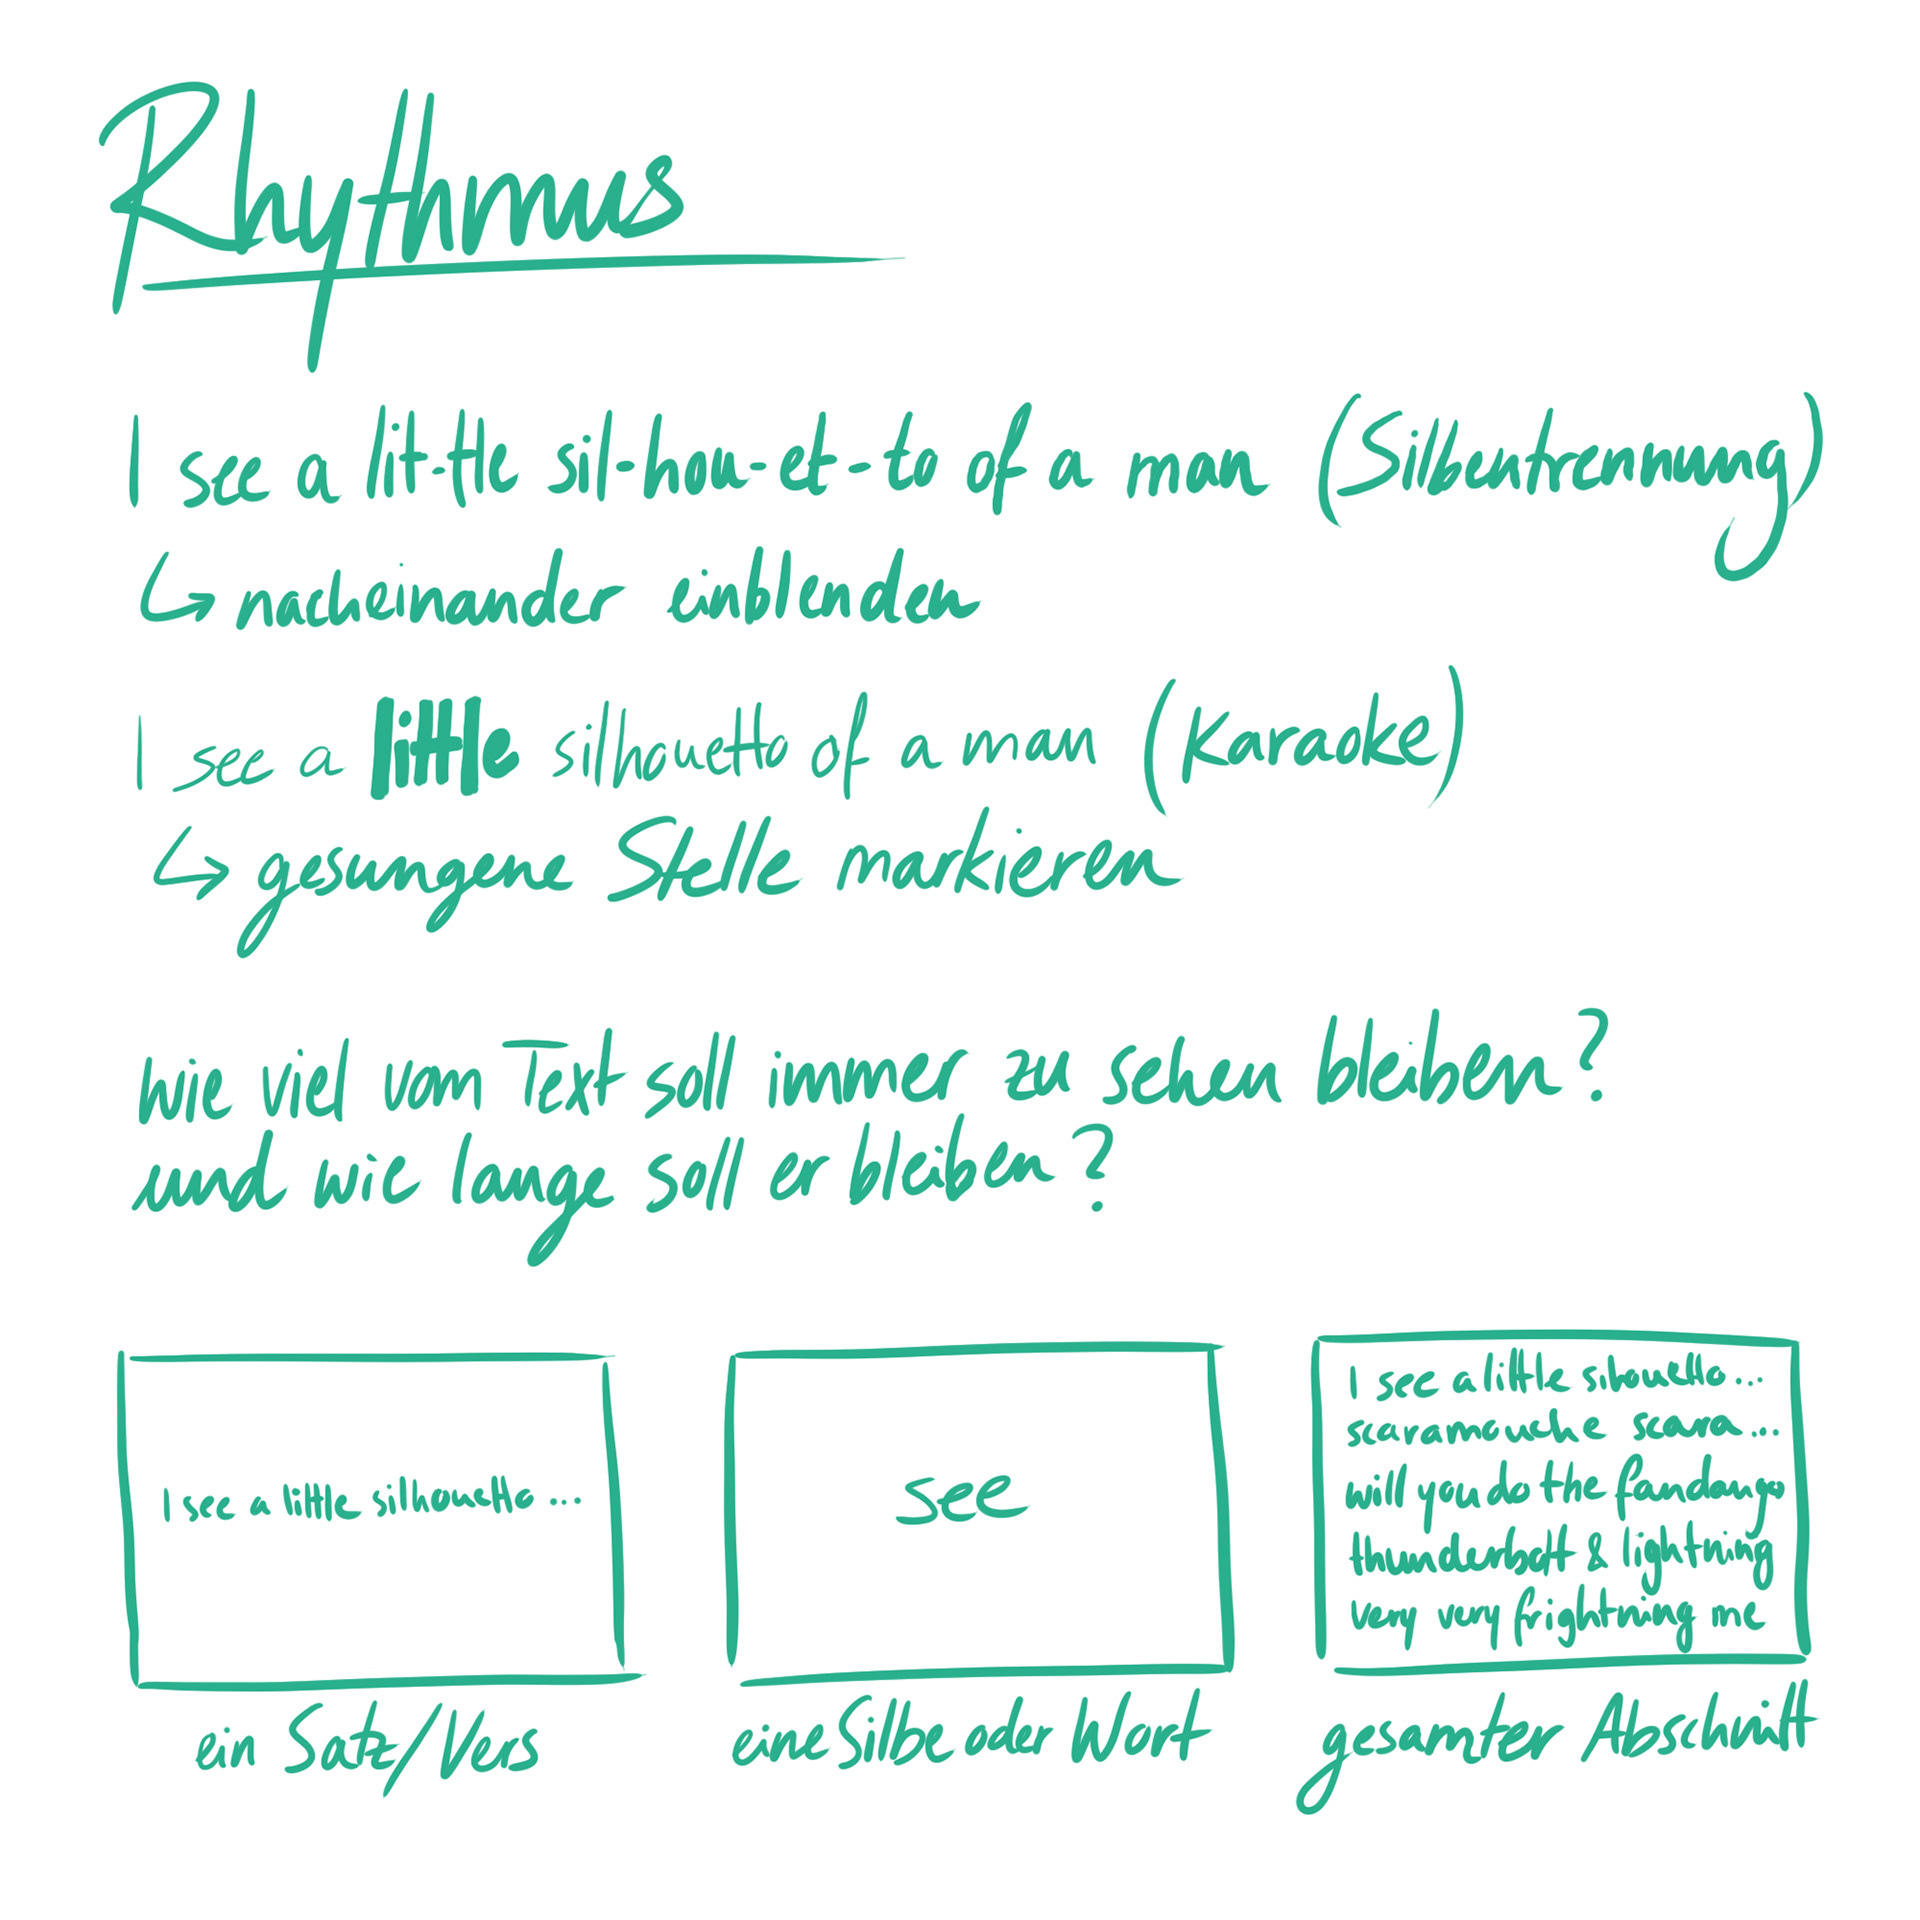 Rhythmus
I see a lit-tle sil-hou-et-to of a man (Silbentrennung)
↳ nacheinander einblenden
I see a little silhouetto of a man (Karaoke)
↳ gesungene Stelle markieren
wie viel vom Text soll immer zu sehen bleiben?
und wie lange soll er bleiben?
I see a little silhouetto...
ein Satz/Vers
see
eine Silbe oder Wort
I see a little silhouetto...
scaramouche scara...
will you do the fandango
thunderbolt & lightning
very very frightning me
gesamter Abschnitt